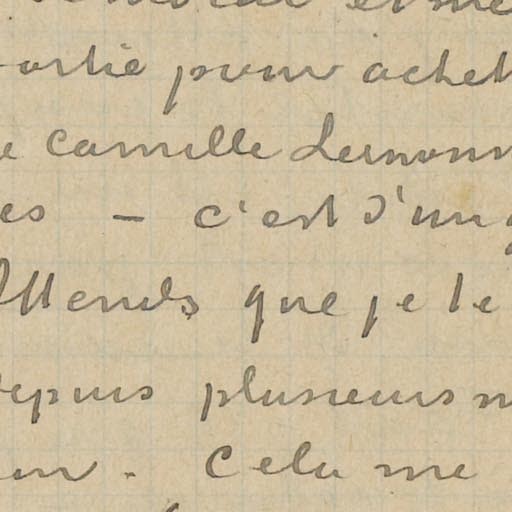 sortie pour achet
e Camille Lemonn
es — c'est d'un
Attends que je te
depuis plusieurs m
. Cela me